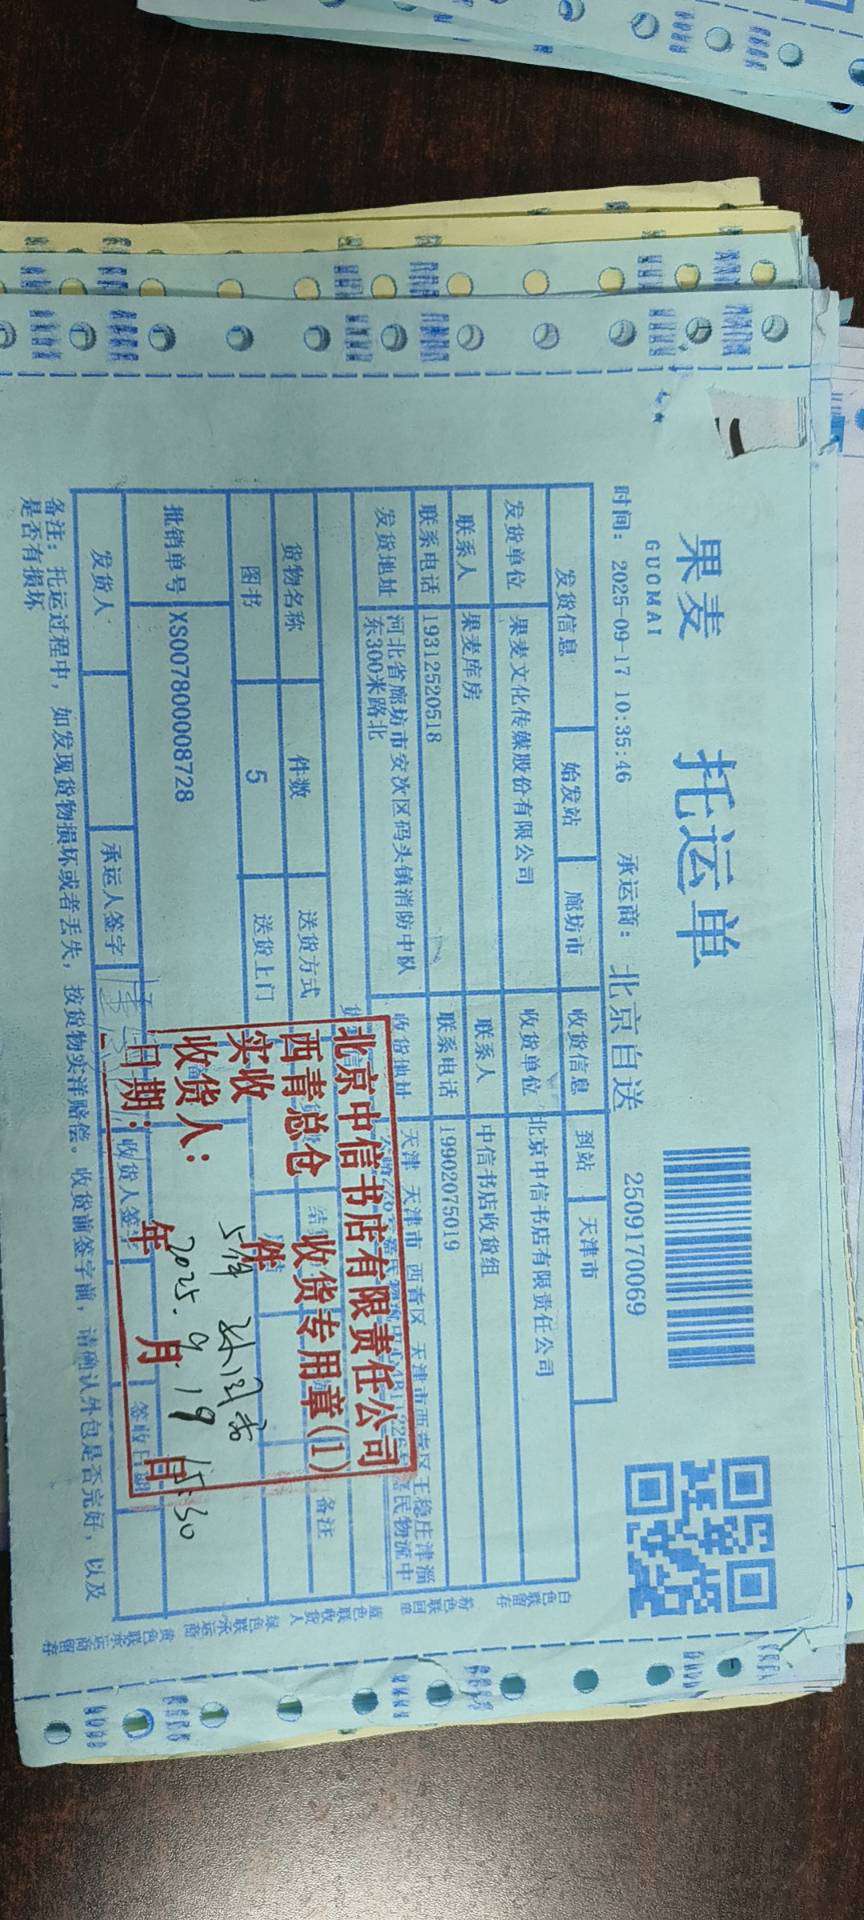 果麦 托运单
GUOMAI
时间: 2025-09-17 10:35:46 承运商: 北京自送 2509170069
发货信息 始发站 廊坊市 收货信息 到站 天津市
发货单位 果麦文化传媒股份有限公司 收货单位 北京中信书店有限责任公司
联系人 果麦库房 联系人 中信书店收货组
联系电话 19312520518 联系电话 19902075019
发货地址 河北省廊坊市安次区码头镇消防中队东300米路北 收货地址 天津 天津市 西青区 天津市西青区王稳庄津淄
民物流中
货物名称 件数 送货方式 备注
图书 5 送货上门
批销单号 XS007800008728
发货人 承运人签字 收货人签字 签收日期
备注: 托运过程中, 如发现货物损坏或者丢失, 按货物实洋赔偿。收货前签字前, 请确认外包是否完好, 以及
是否有损坏
北京中信书店有限责任公司
西青总仓 收货专用章(1)
实收 5件 件
收货人:
日期: 2025年 9月 19日 15:30
白色联留存
粉色联回单
蓝色联收货人
绿色联承运商
黄色联承运商留存